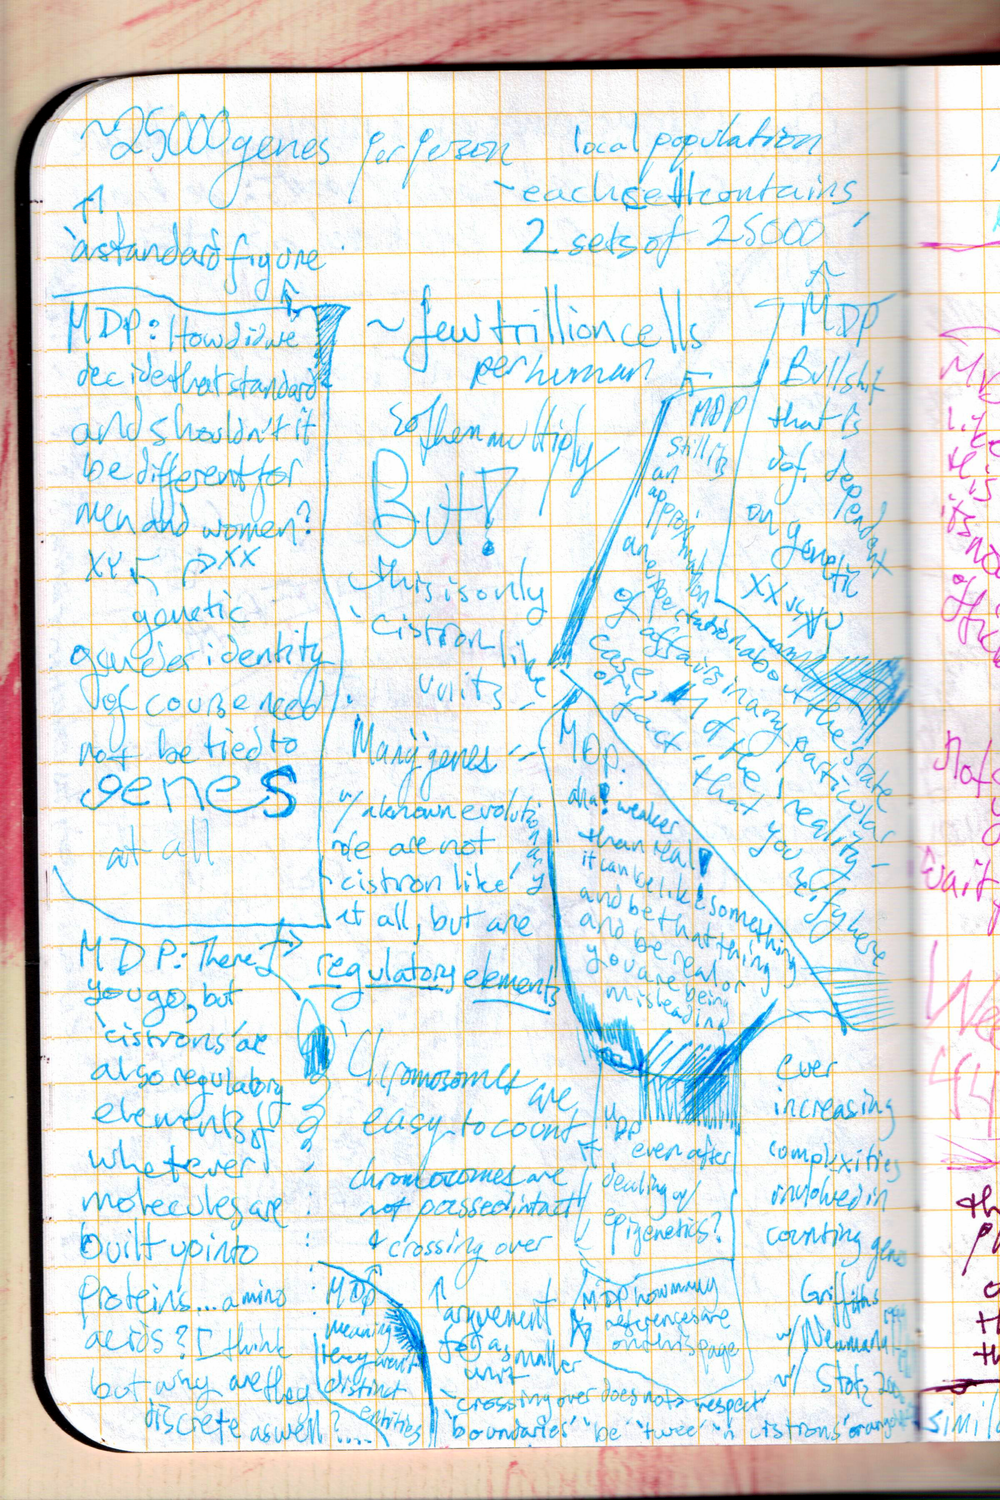 ~25000 genes per person
local population
- each cell contains
2 sets of 25000
'a standard figure
MDP: How did we
decide that standard
and shouldn't it
be different for
men and women?
XY XX
genetic
gender identity
of course need
not be tied to
genes
at all
~ few trillion cells
per human
So then multiply
But!
this is only
'cistron like'
units
Many genes
w/ unknown evolutionary
role are not
'cistron like'
at all, but are
regulatory elements
MDP
Bullshit
that is
dependent
on genetic
XX vs XY
MDP
still is
an
approximation
an expectation about the state
of affairs in any particular
case, in the 'reality'
or 'fact' that you reify here
MDP:
aha! weaker
than real!
it can be like something
and be that thing
and be real or
you are being
misleading
MDP: There
you go, but
'cistrons' are
also regulatory
elements of
whatever
molecules are
built up into
proteins... amino
acids? I think
but why are they
discrete as well?....
Chromosomes are
easy to count
chromosomes are
not passed intact
& crossing over
MDP
even after
dealing w/
epigenetics?
Ever
increasing
complexities
involved in
counting genes
MDP
meaning
they aren't
distinct
entities
argument
for a
smaller
unit
MDP how many
references are
on this page
Griffiths
w/ Neumann
w/ Stotz
- crossing over does not 'respect'
'boundaries' 'be 'twee' 'n cistrons'